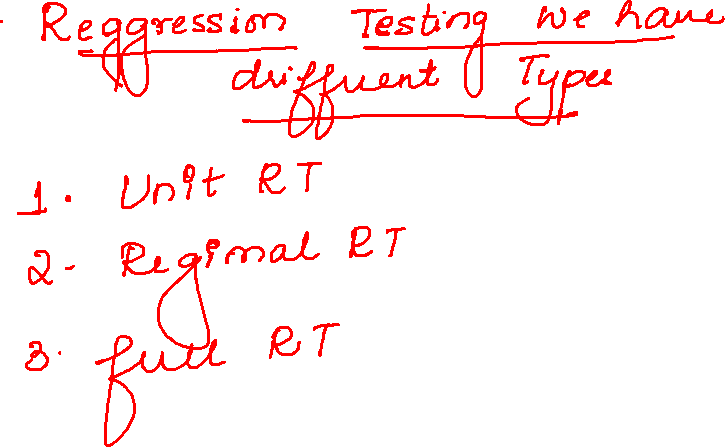 Reggression Testing We have
driffuent Types
1. Unit RT
2- Regimal RT
3. full RT